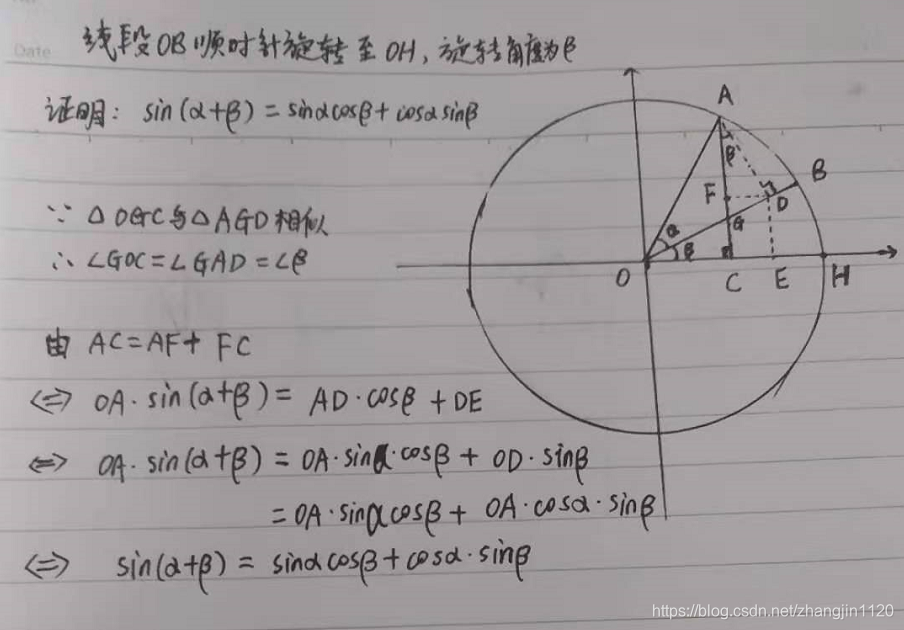 Date
线段OB顺时针旋转至OH，旋转角度为β
证明： sin(α+β) = sinαcosβ + cosαsinβ
∵ △OGC与△AGD相似
∴ ∠GOC=∠GAD=∠β
由 AC=AF+ FC
<=> OA·sin(α+β) = AD·cosβ + DE
<=> OA·sin(α+β) = OA·sinα·cosβ + OD·sinβ
= OA·sinαcosβ + OA·cosα·sinβ
<=> sin(α+β) = sinαcosβ+cosα·sinβ
A
β
B
F
D
G
α
β
O
C
E
H
https://blog.csdn.net/zhangjin1120